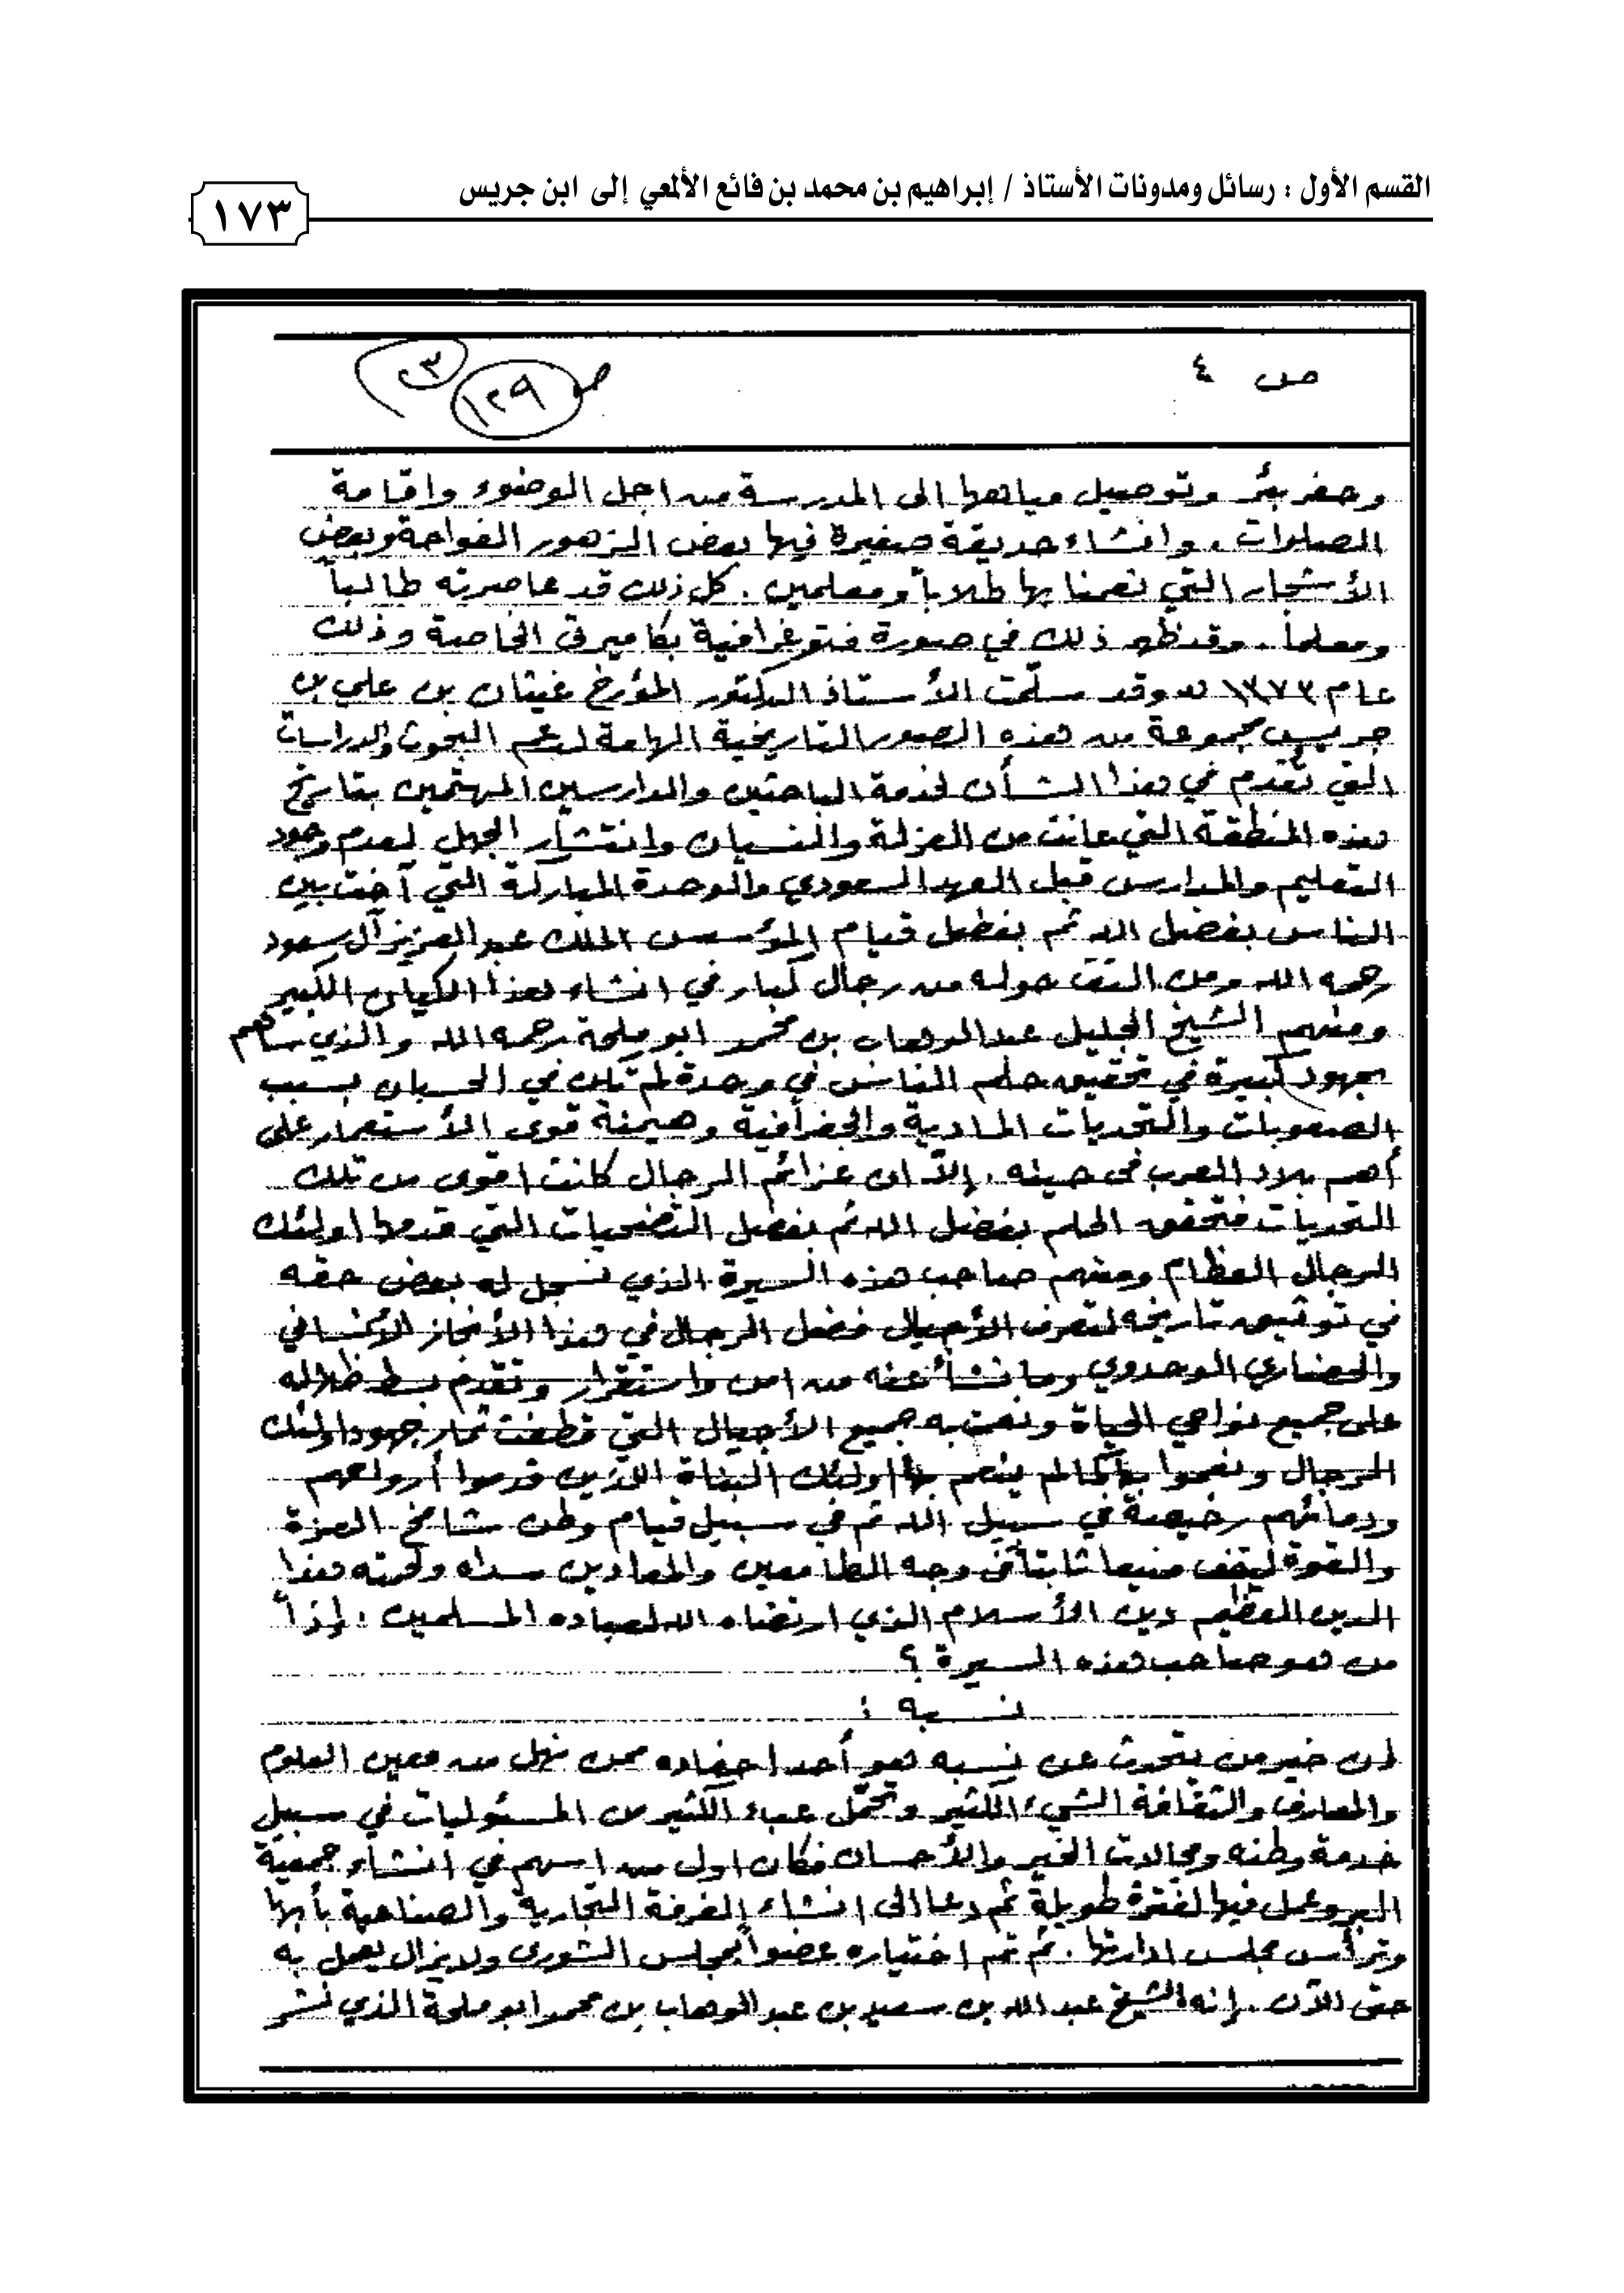 القسم الأول : رسائل ومدونات الأستاذ / إبراهيم بن محمد بن فائع الألمعي إلى ابن جريس
١٧٣
ص ٤
ص ١٢٩
٣
وحفر بئر وتوصيل مياهها الى المدرسة من اجل الوضوء واقامة
الصلوات. وانشاء حديقة صغيرة فيها بعض الزهور الفواحة وبعض
الأشجار التي نعمنا بها طلاباً ومعلمين. كل ذلك قد عاصرته طالباً
ومعلماً. وقد ظهر ذلك في صورة فتوغرافية بكاميرتي الخاصة وذلك
عام ١٣٧٣ هـ وقد سلّمت الأستاذ الدكتور المؤرخ غيثان بن علي بن
جريس مجموعة من هذه الصور التاريخية الهامة لدعم البحوث والدراسات
التي تقدم في هذا الشأن لخدمة الباحثين والدارسين المهتمين بتاريخ
هذه المنطقة التي عانت من العزلة والنسيان وانتشار الجهل لعدم وجود
التعليم والمدارس قبل العهد السعودي والوحدة المباركة التي آخت بين
الناس بفضل الله ثم بفضل قيام المؤسس الملك عبدالعزيز آل سعود
رحمه الله ومن التف حوله من رجال كبار في انشاء هذا الكيان الكبير
ومنهم الشيخ الجليل عبدالوهاب بن محمد ابو ملحة رحمه الله والذي ساهم
بجهود كبيرة في تحقيق حلم الناس في وحدة لم تكن في الحسبان بسبب
الصعوبات والتحديات المادية والجغرافية وهيمنة قوى الأستعمار على
أهم بلاد العرب في حينه. إلاّ ان عزائم الرجال كانت اقوى من تلك
التحديات فتحقق الحلم بفضل الله ثم بفضل التضحيات التي قدمها اولئك
الرجال العظام ومنهم صاحب هذه السيرة الذي نسجل له بعض حقه
في توثيق تاريخه لتعرف الأجيال فضل الرجال في هذا الأنجاز الأنساني
والحضاري الوحدوي وما نشأ عنه من امن واستقرار وتقدم بسط ظلاله
على جميع نواحي الحياة ونعمت به جميع الأجيال التي قطفت ثمار جهود اولئك
الرجال ونعموا بها كما لم ينعم بها اولئك البناة اللذين قدموا أرواحهم
ودمائهم رخيصة في سبيل الله ثم في سبيل قيام وطن شامخ العزة
والقوة ليقف منيعا ثابتاً في وجه الطامعين والمعادين سداه ولحمته هذا
الدين العظيم دين الأسلام الذي ارتضاه الله لعباده المسلمين : إذاً
من هو صاحب هذه السيرة ؟
نسبه :
إن خير من يتحدث عن نسبه هو أحد احفاده ممن نهل من معين العلوم
والمعارف والثقافة الشيء الكثير وتحمّل عبء الكثير من المسئوليات في سبيل
خدمة وطنه ومجالات الخير والأحسان فكان اول من اسهم في انشاء جمعية
البر وعمل فيها لفترة طويلة ثم دعا الى انشاء الغرفة التجارية والصناعية بأبها
وترأس مجلس ادارتها. ثم تم اختياره عضواً بمجلس الشورى ولا يزال يعمل به
حتى الآن. إنه الشيخ عبدالله بن سعيد بن عبدالوهاب بن محمد ابو ملحة الذي نشر